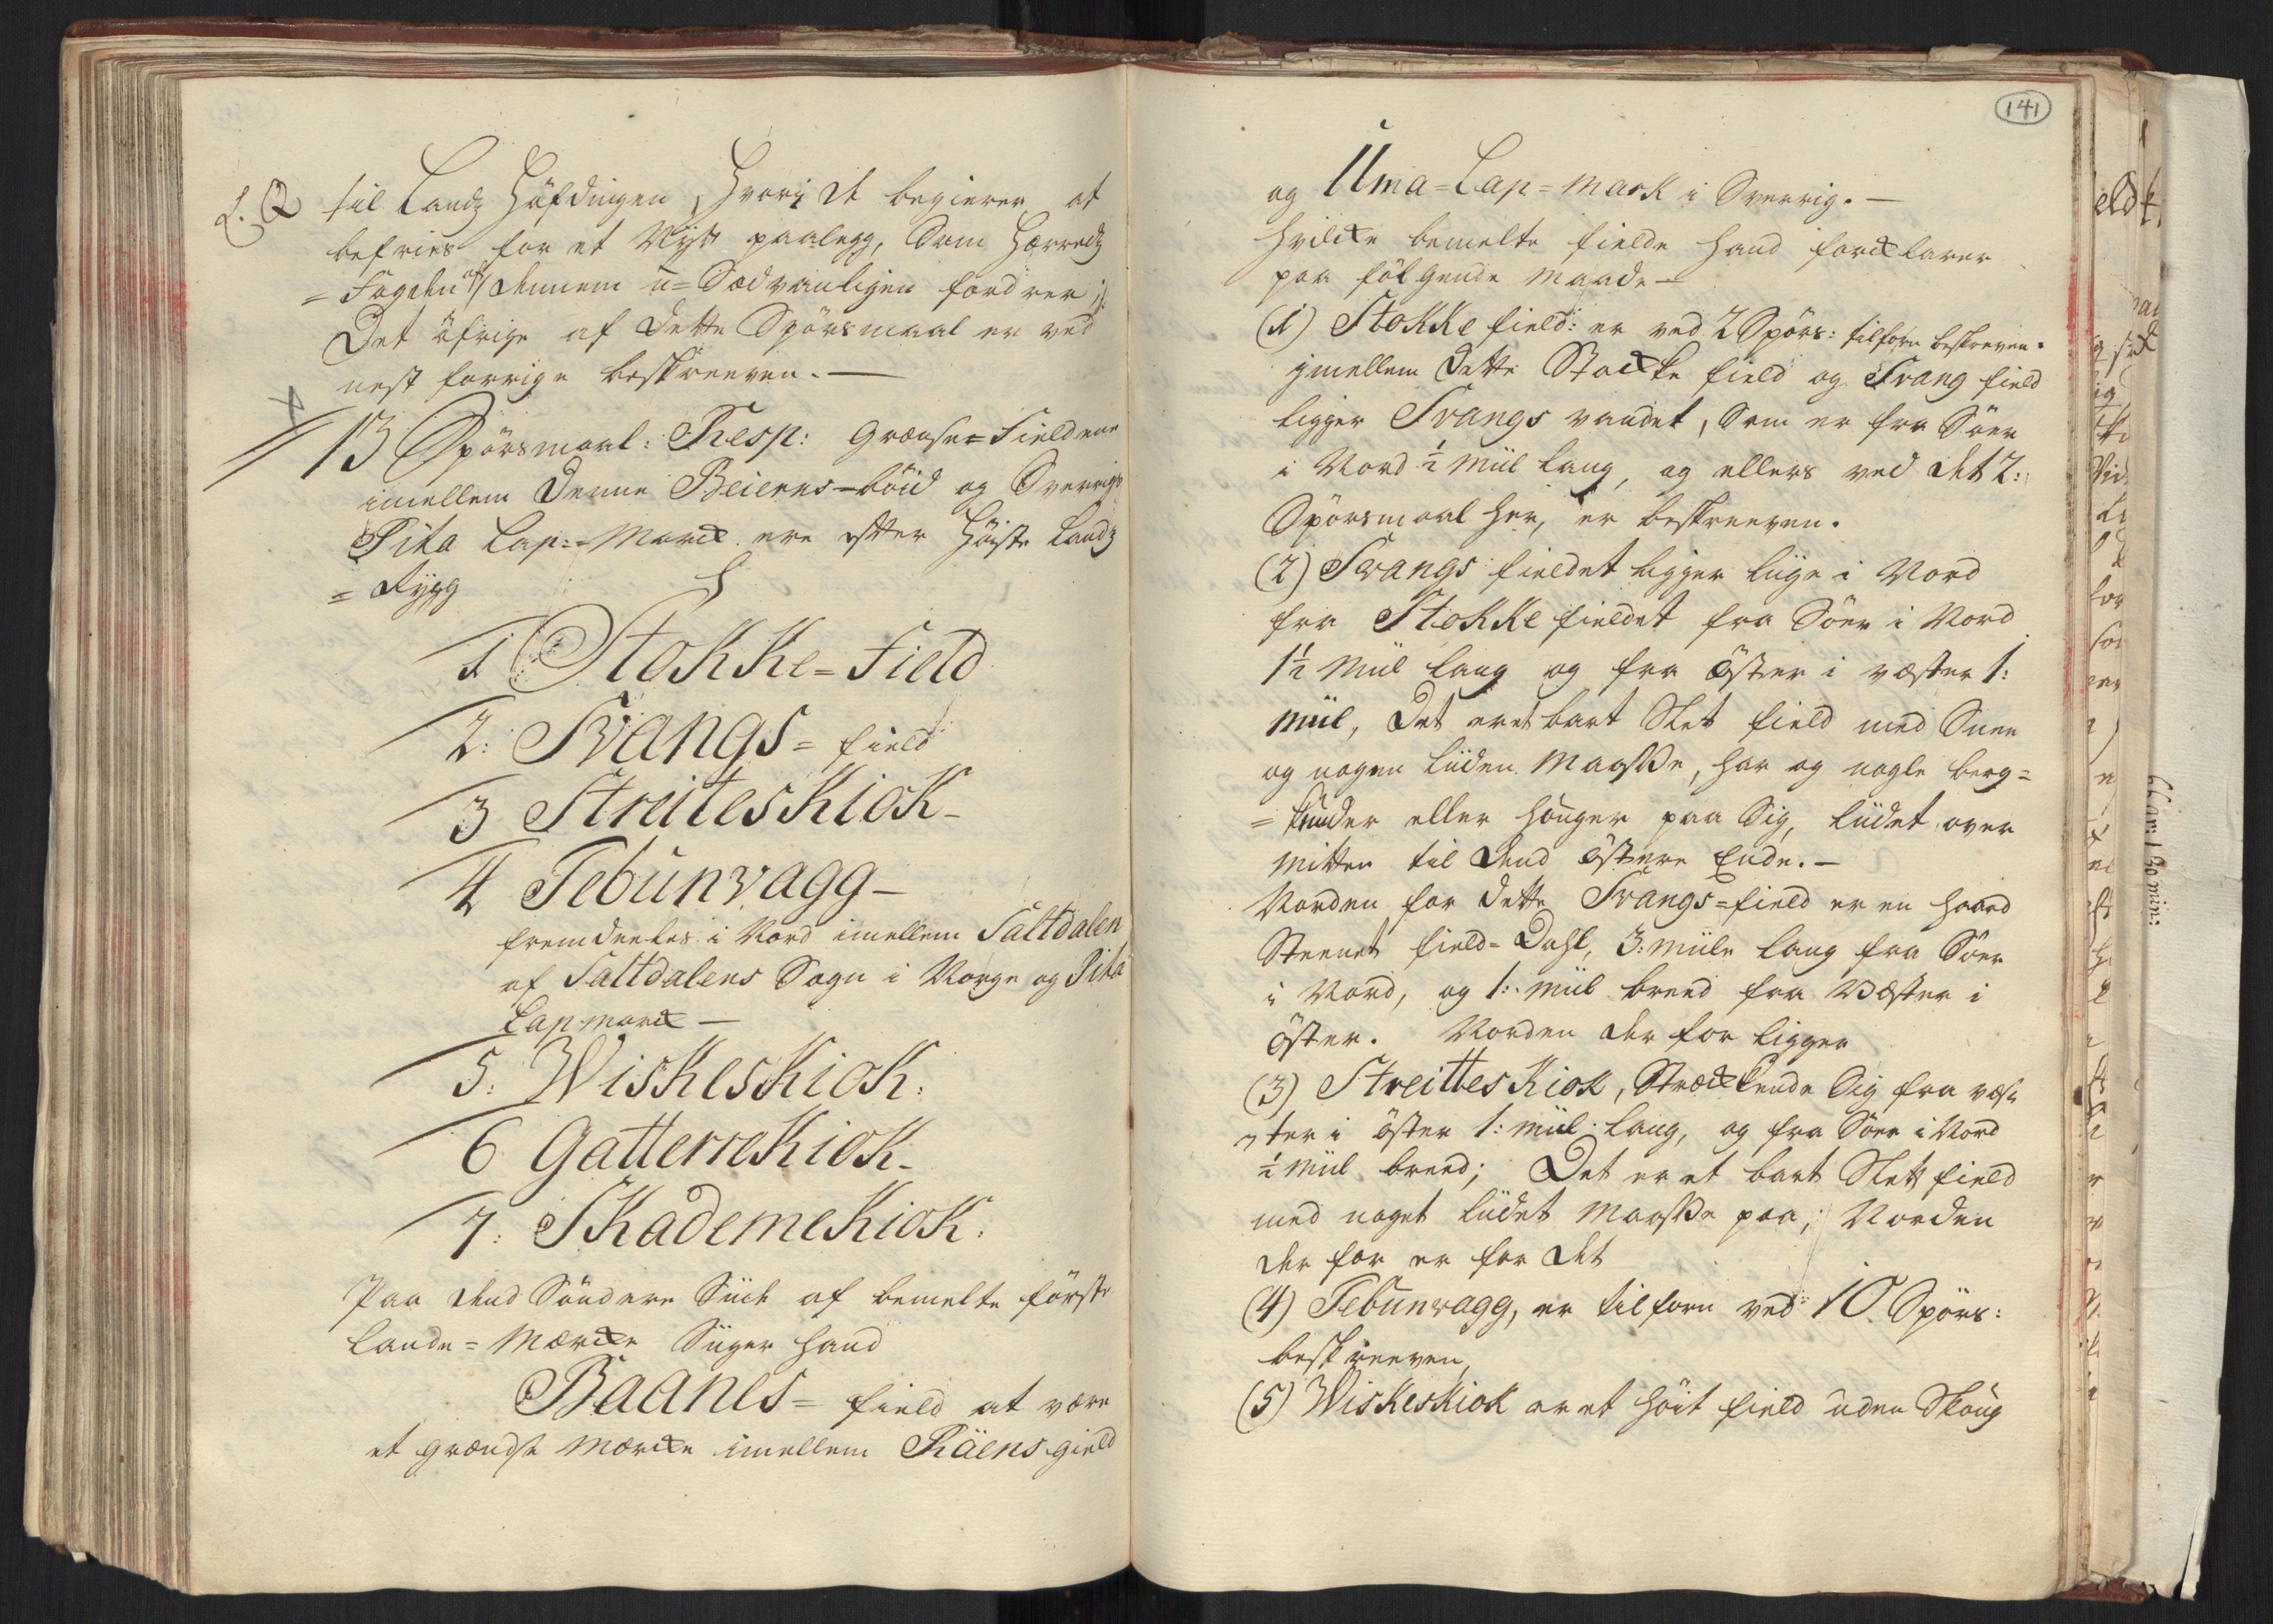 L. Q til Landz Höfdingen, Hvorj de begierer at
befries for et Nÿtt paalegg, Som Herredz
= Fogden af dennem u=Sædvanligen fordrer;
Det öfrige af dette Spörsmaal er ved
nest forrige beskreeven. —
13 Spörsmaal: Resp: Grændse=Fieldene
imellem denne Beierens-böid og Sverrigs
Pita Lap=Marck ere efter Höiste Landz
= Rygg
1 Stokke=Field
2: Svangs= field
3 StreitesKiok-
4 Tebunvagg-
fremdeeles i Nord imellem Saltdalen
af Saltdalens Sogn i Norge og Pita
Lapmarck —
5: WiskesKiok:
6 GatterreKiok-
7: SkademeKiok:
Paa dend Söndere Siide af bemelte förste
Lande=Mercke Siiger hand
Baanes= field at være
et grændse Mercke imellem Räens gield
141
og Uma=Lap=mark i Sverrig. —
Hvilcke bemelte fielde hand forcklarer
paa fölgende Maade —
(1) Stokke field: er ved 2 Spörs: tilforn beskreven.
jmellem dette Stocke field og Svang field
ligger Svangs vandet, Som er fra Söer
i Nord ½ Miil lang, og ellers ved det 2:
Spörsmaal her, er beskreeven.
(2) Svangs fieldet ligger liige i Nord
fra Stokke fieldet fra Söer i Nord
1½ Miil lang og fra öster i væster 1:
miil, Det er et bart Slet field med Snee
og nogen liiden Maasse, har og nogle berg=
= tinder eller Houger paa Sig, liidet over
mitten til dend östere Ende. —
Norden for dette Svangs=field er en haard
Steenet field=Dahl, 3: miile lang fra Söer
i Nord, og 1: miil breed fra Væster i
öster. Norden der for ligger
(3) StreittesKiok, Streckende Sig fra væs
=ter i öster 1: miil lang, og fra Söer i Nord
½ Miil breed; Det er et bart Slett field
med noget liidet Maasse paa; Norden
der for er for det
(4) Tebunvagg, er tilforn ved 10. Spörs:
beskreeven,
(5) WiskesKiok er et höit field uden Skoug